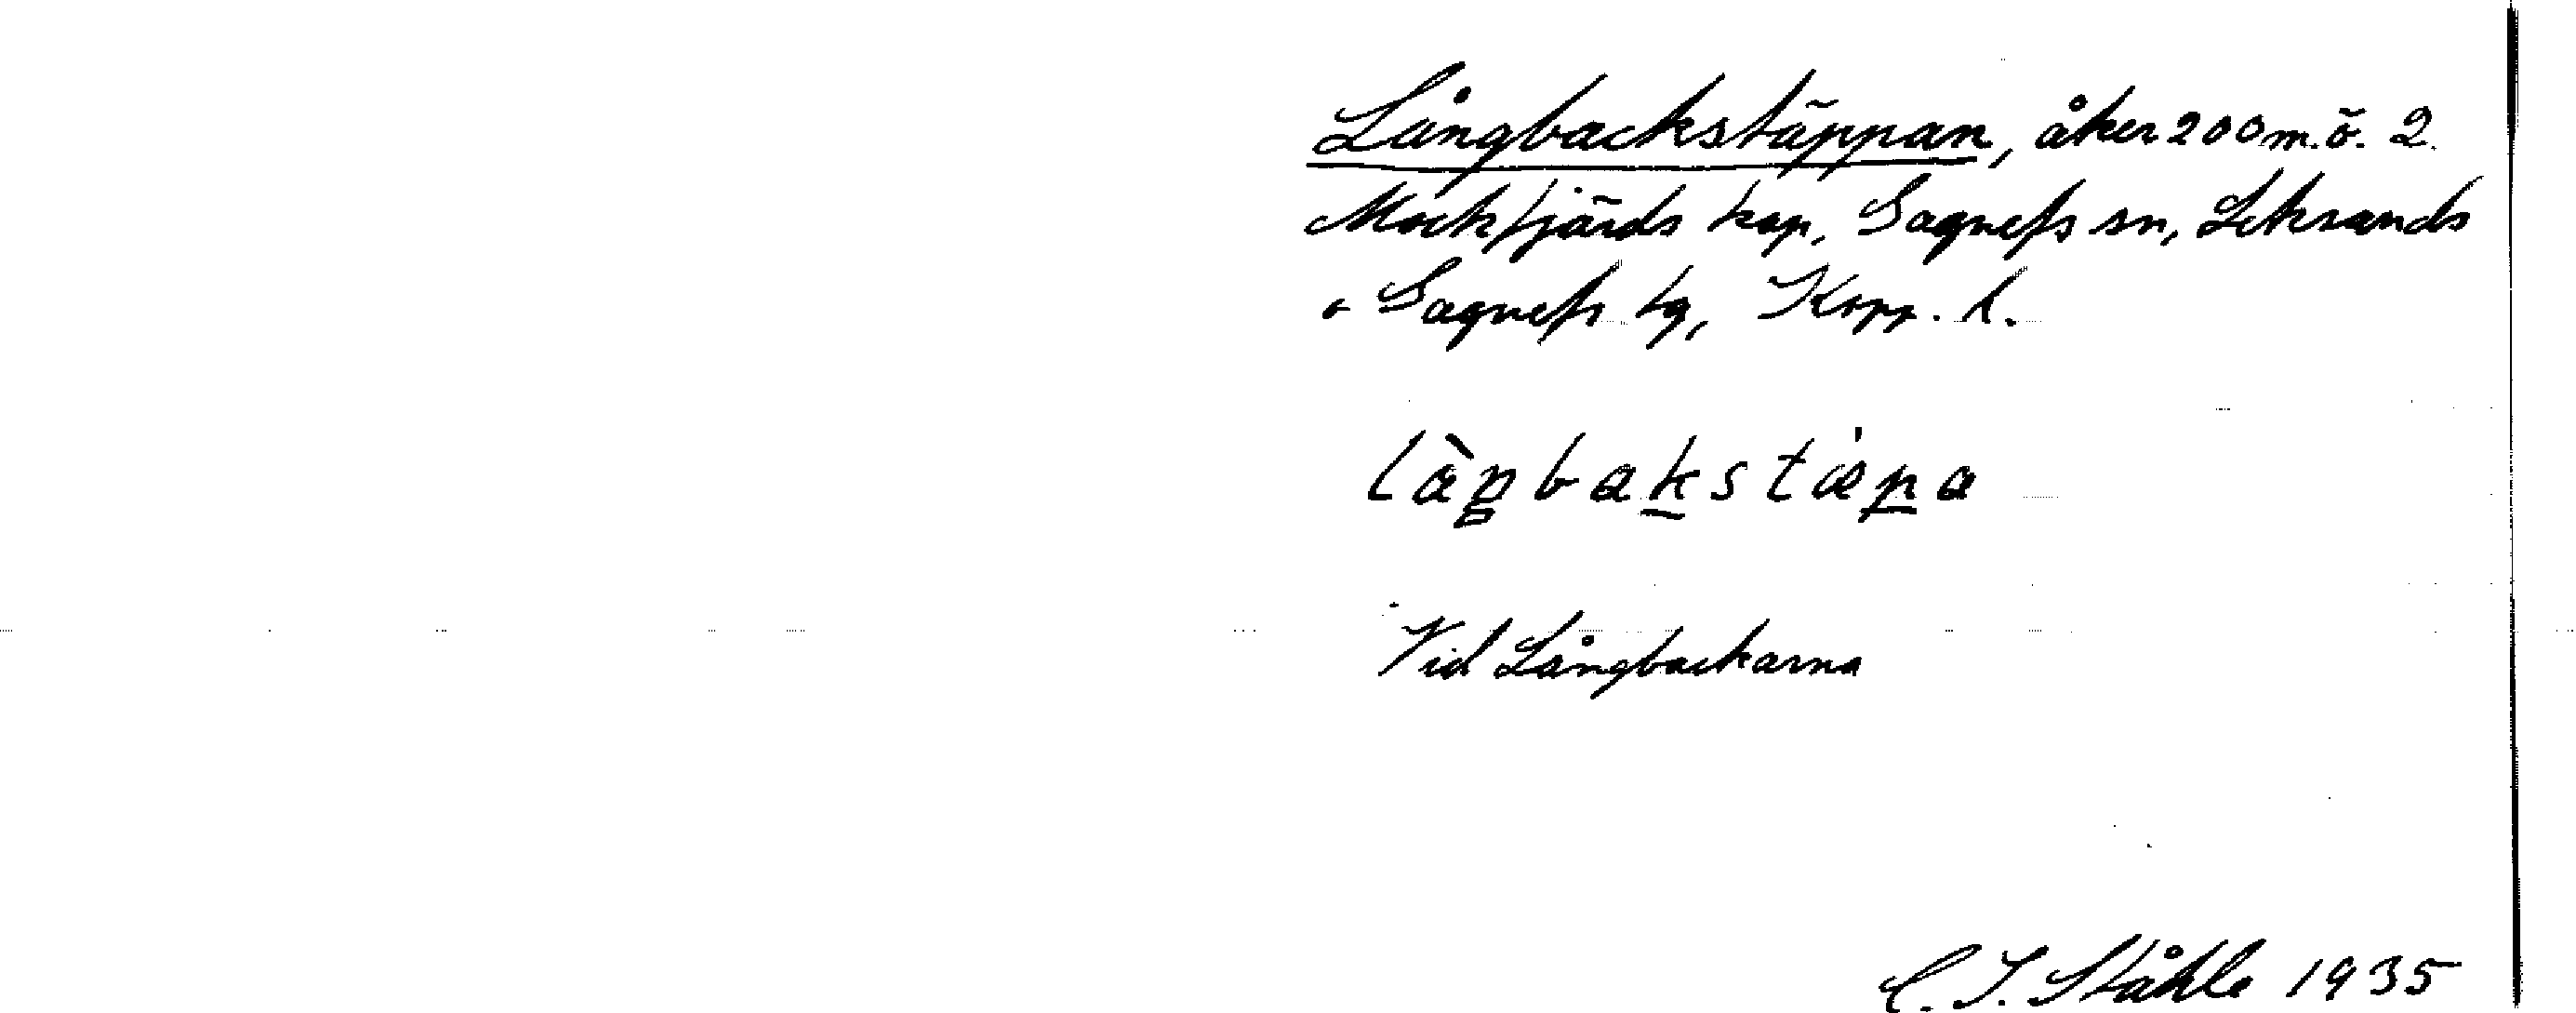 Långbackstäppan, åker 200 m. ö. 2.
Mockfjärds kap, Gagnefs sn, Leksands
o Gagnefs tg, Kopp. l.
làŋbakstæpa
Vid Långbackarna
C. I. Ståhle 1935